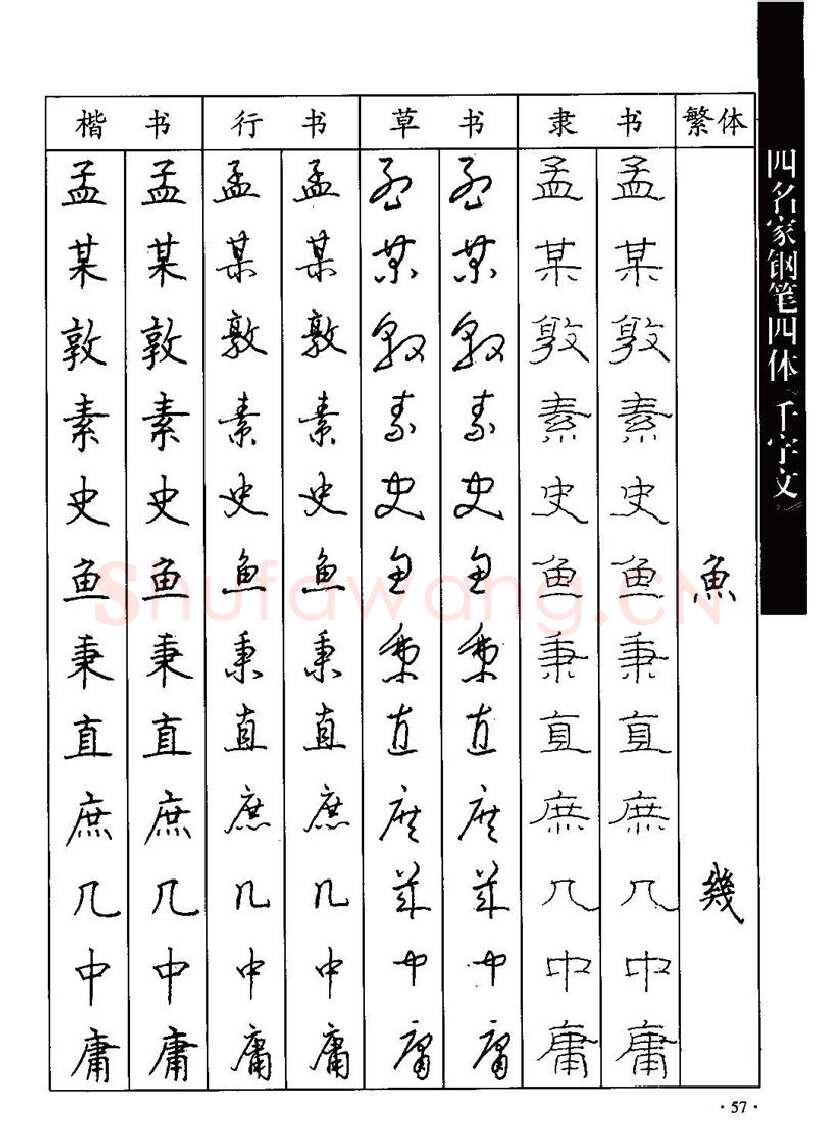 楷书 行书 草书 隶书 繁体
孟 孟 孟 孟 孟 孟 孟 孟
某 某 某 某 某 某 某 某
敦 敦 敦 敦 敦 敦 敦 敦
素 素 素 素 素 素 素 素
史 史 史 史 史 史 史 史
鱼 鱼 魚 魚 鱼 鱼 鱼 鱼 魚
秉 秉 秉 秉 秉 秉 秉 秉
直 直 直 直 直 直 直 直
庶 庶 庶 庶 庶 庶 庶 庶
几 几 几 几 幾 幾 几 几 幾
中 中 中 中 中 中 中 中
庸 庸 庸 庸 庸 庸 庸 庸
四名家钢笔四体《千字文》
Shufawang.CN
·57·